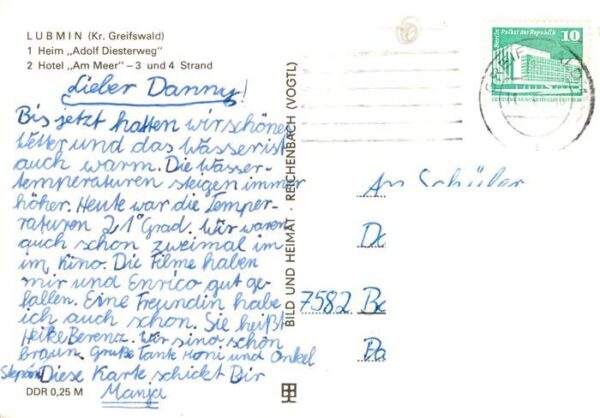 LUBMIN (Kr. Greifswald)
1 Heim „Adolf Diesterweg"
2 Hotel „Am Meer" – 3 und 4 Strand
Lieber Danny!
Bis jetzt hatten wir schönes
Wetter und das Wasser ist
auch warm. Die Wasser-
temperaturen steigen immer
höher. Heute war die Temper-
raturen 21° Grad. Wir waren
auch schon zweimal im
im Kino. Die Filme haben
mir und Enrico gut ge-
fallen. Eine Freundin habe
ich auch schon. Sie heißt
Heike Berenz. Wir sind schon
braun. Grüße Tante Moni und Onkel
Stephan Diese Karte schickt Dir
Manja
DDR 0,25 M
BILD UND HEIMAT · REICHENBACH (VOGTL)
Berlin Palast der Republik
10
DEUTSCHE DEMOKRATISCHE REPUBLIK
An Schüler
7582